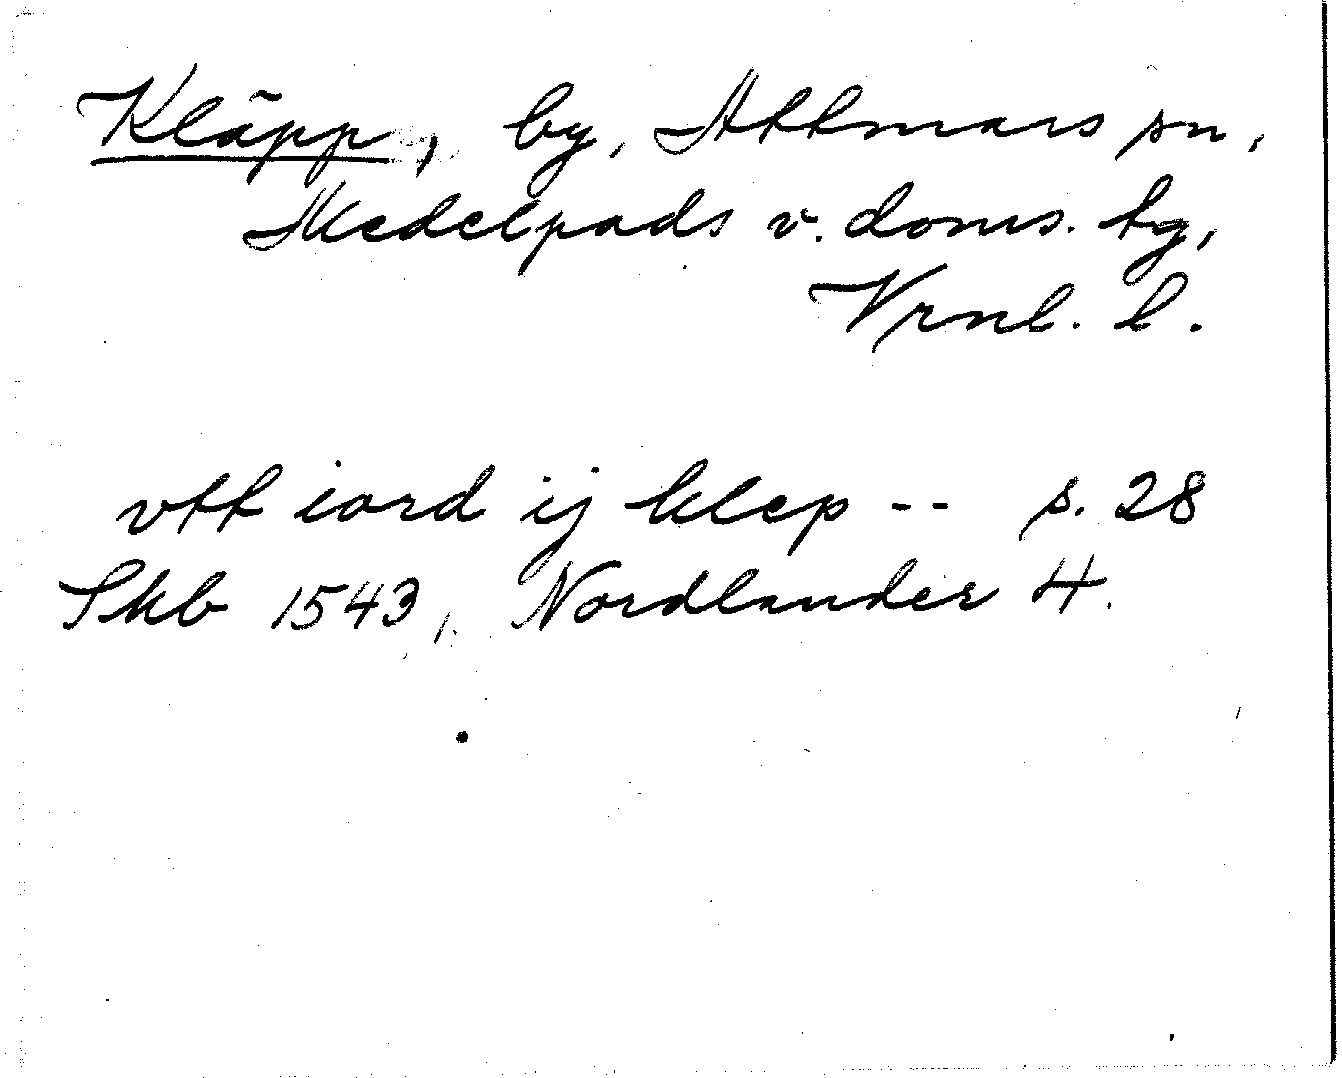 Kläpp, by, Attmars sn,
Medelpads v. doms. tg,
Vrnl. l.
vtt iord ij klep -- s. 28
Skb 1543, Nordlander H.